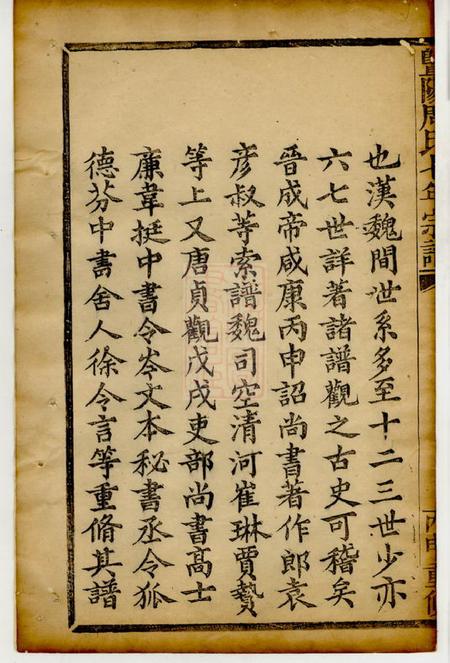 暨陽周氏大年宗譜
丙申重修
也漢魏間世系多至十二三世少亦
六七世詳著諸譜觀之古史可稽矣
晉成帝咸康丙申詔尚書著作郎袁
彥叔等索譜魏司空清河崔琳賈蟄
等上又唐貞觀戊戌吏部尚書高士
廉韋挺中書令岑文本秘書丞令狐
德芬中書舍人徐令言等重脩其譜